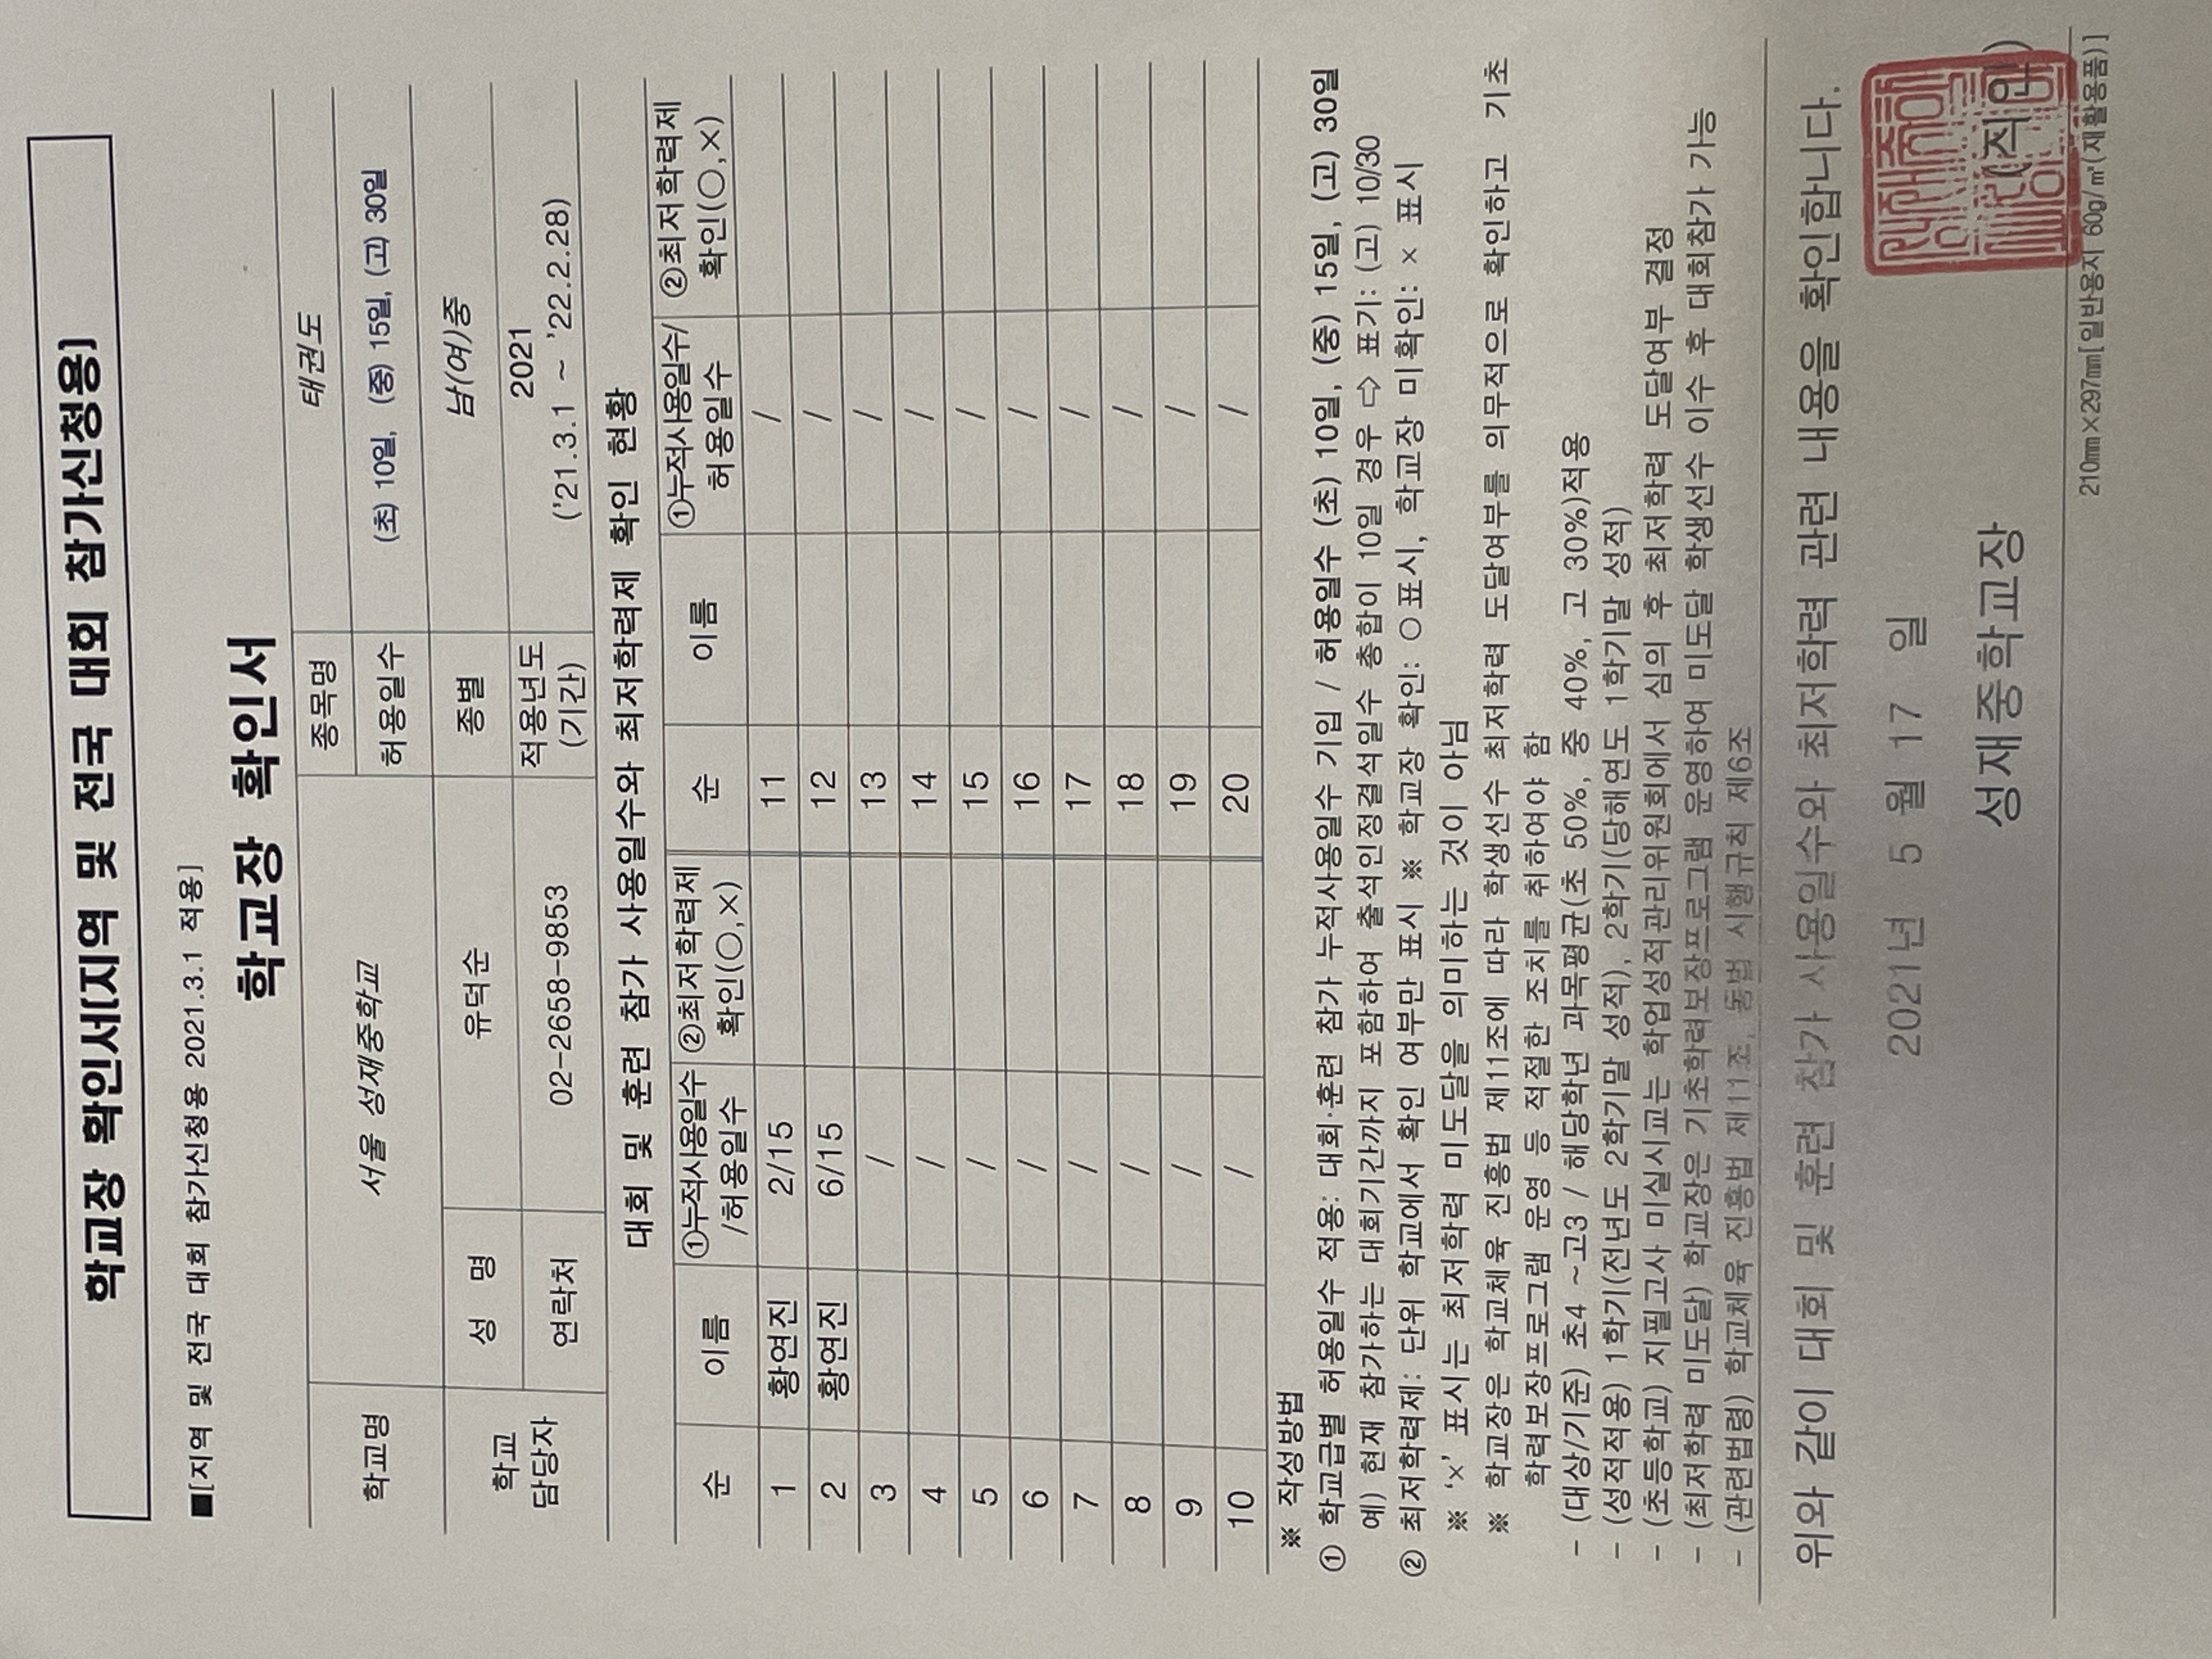 학교장 확인서(지역 및 전국 대회 참가신청용)
■[지역 및 전국 대회 참가신청용 2021.3.1 적용]
학교장 확인서
학교명 서울 성재중학교 종목명 태권도
허용일수 (초) 10일, (중) 15일, (고) 30일
학교 담당자 성 명 유덕순 종별 남(여)중
연락처 02-2658-9853 적용년도 (기간) 2021 ('21.3.1 ~ '22.2.28)
대회 및 훈련 참가 사용일수와 최저학력제 확인 현황
순 이름 ①누적사용일수/허용일수 ②최저학력제 확인(○,×) 순 이름 ①누적사용일수/허용일수 ②최저학력제 확인(○,×)
1 황연진 2/15 11 /
2 황연진 6/15 12 /
3 / 13 /
4 / 14 /
5 / 15 /
6 / 16 /
7 / 17 /
8 / 18 /
9 / 19 /
10 / 20 /
※ 작성방법
① 학교급별 허용일수 적용: 대회·훈련 참가 누적사용일수 기입 / 허용일수 (초) 10일, (중) 15일, (고) 30일
예) 현재 참가하는 대회기간까지 포함하여 출석인정결석일수 총합이 10일 경우 ⇨ 표기: (고) 10/30
② 최저학력제: 단위 학교에서 확인 여부만 표시 ※ 학교장 확인: ○표시, 학교장 미확인: × 표시
※ '×' 표시는 최저학력 미도달을 의미하는 것이 아님
※ 학교장은 학교체육 진흥법 제11조에 따라 학생선수 최저학력 도달여부를 의무적으로 확인하고 기초
학력보장프로그램 운영 등 적절한 조치를 취하여야 함
- (대상/기준) 초4 ~고3 / 해당학년 과목평균(초 50%, 중 40%, 고 30%)적용
- (성적적용) 1학기(전년도 2학기말 성적), 2학기(당해연도 1학기말 성적)
- (초등학교) 지필고사 미실시교는 학업성적관리위원회에서 심의 후 최저학력 도달여부 결정
- (최저학력 미도달) 학교장은 기초학력보장프로그램 운영하여 미도달 학생선수 이수 후 대회참가 가능
- (관련법령) 학교체육 진흥법 제11조, 동법 시행규칙 제6조
위와 같이 대회 및 훈련 참가 사용일수와 최저학력 관련 내용을 확인합니다.
2021년 5 월 17 일
성재중학교장 (직인)
210㎜×297㎜[일반용지 60g/㎡(재활용품)]